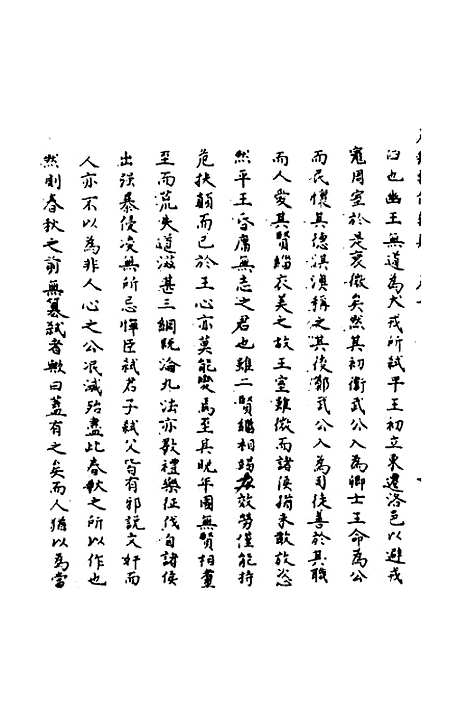 曰也幽王無道為犬戎所弒平王初立東遷洛邑以避戎
寇周室於是衰微矣然其初衛武公入為卿士王命為公
而民懷其德淇澳稱之其後鄭武公入為司徒善於其職
而人愛其賢緇衣美之故王室雖微而諸侯猶未敢放恣
然平王昏庸無志之君也雖二賢繼相竭力效勞僅能持
危扶顛而已於王心亦莫能變焉至其晚年國無賢相薑
至而荒失道滋甚三綱既淪九法亦斁禮樂征伐自諸侯
出强暴侵凌無所忌憚臣弒君子弒父皆有邪說文奸而
人亦不以為非人心之公泯滅殆盡此春秋之所以作也
然則春秋之前無篡弒者歟曰蓋有之矣而人猶以為當